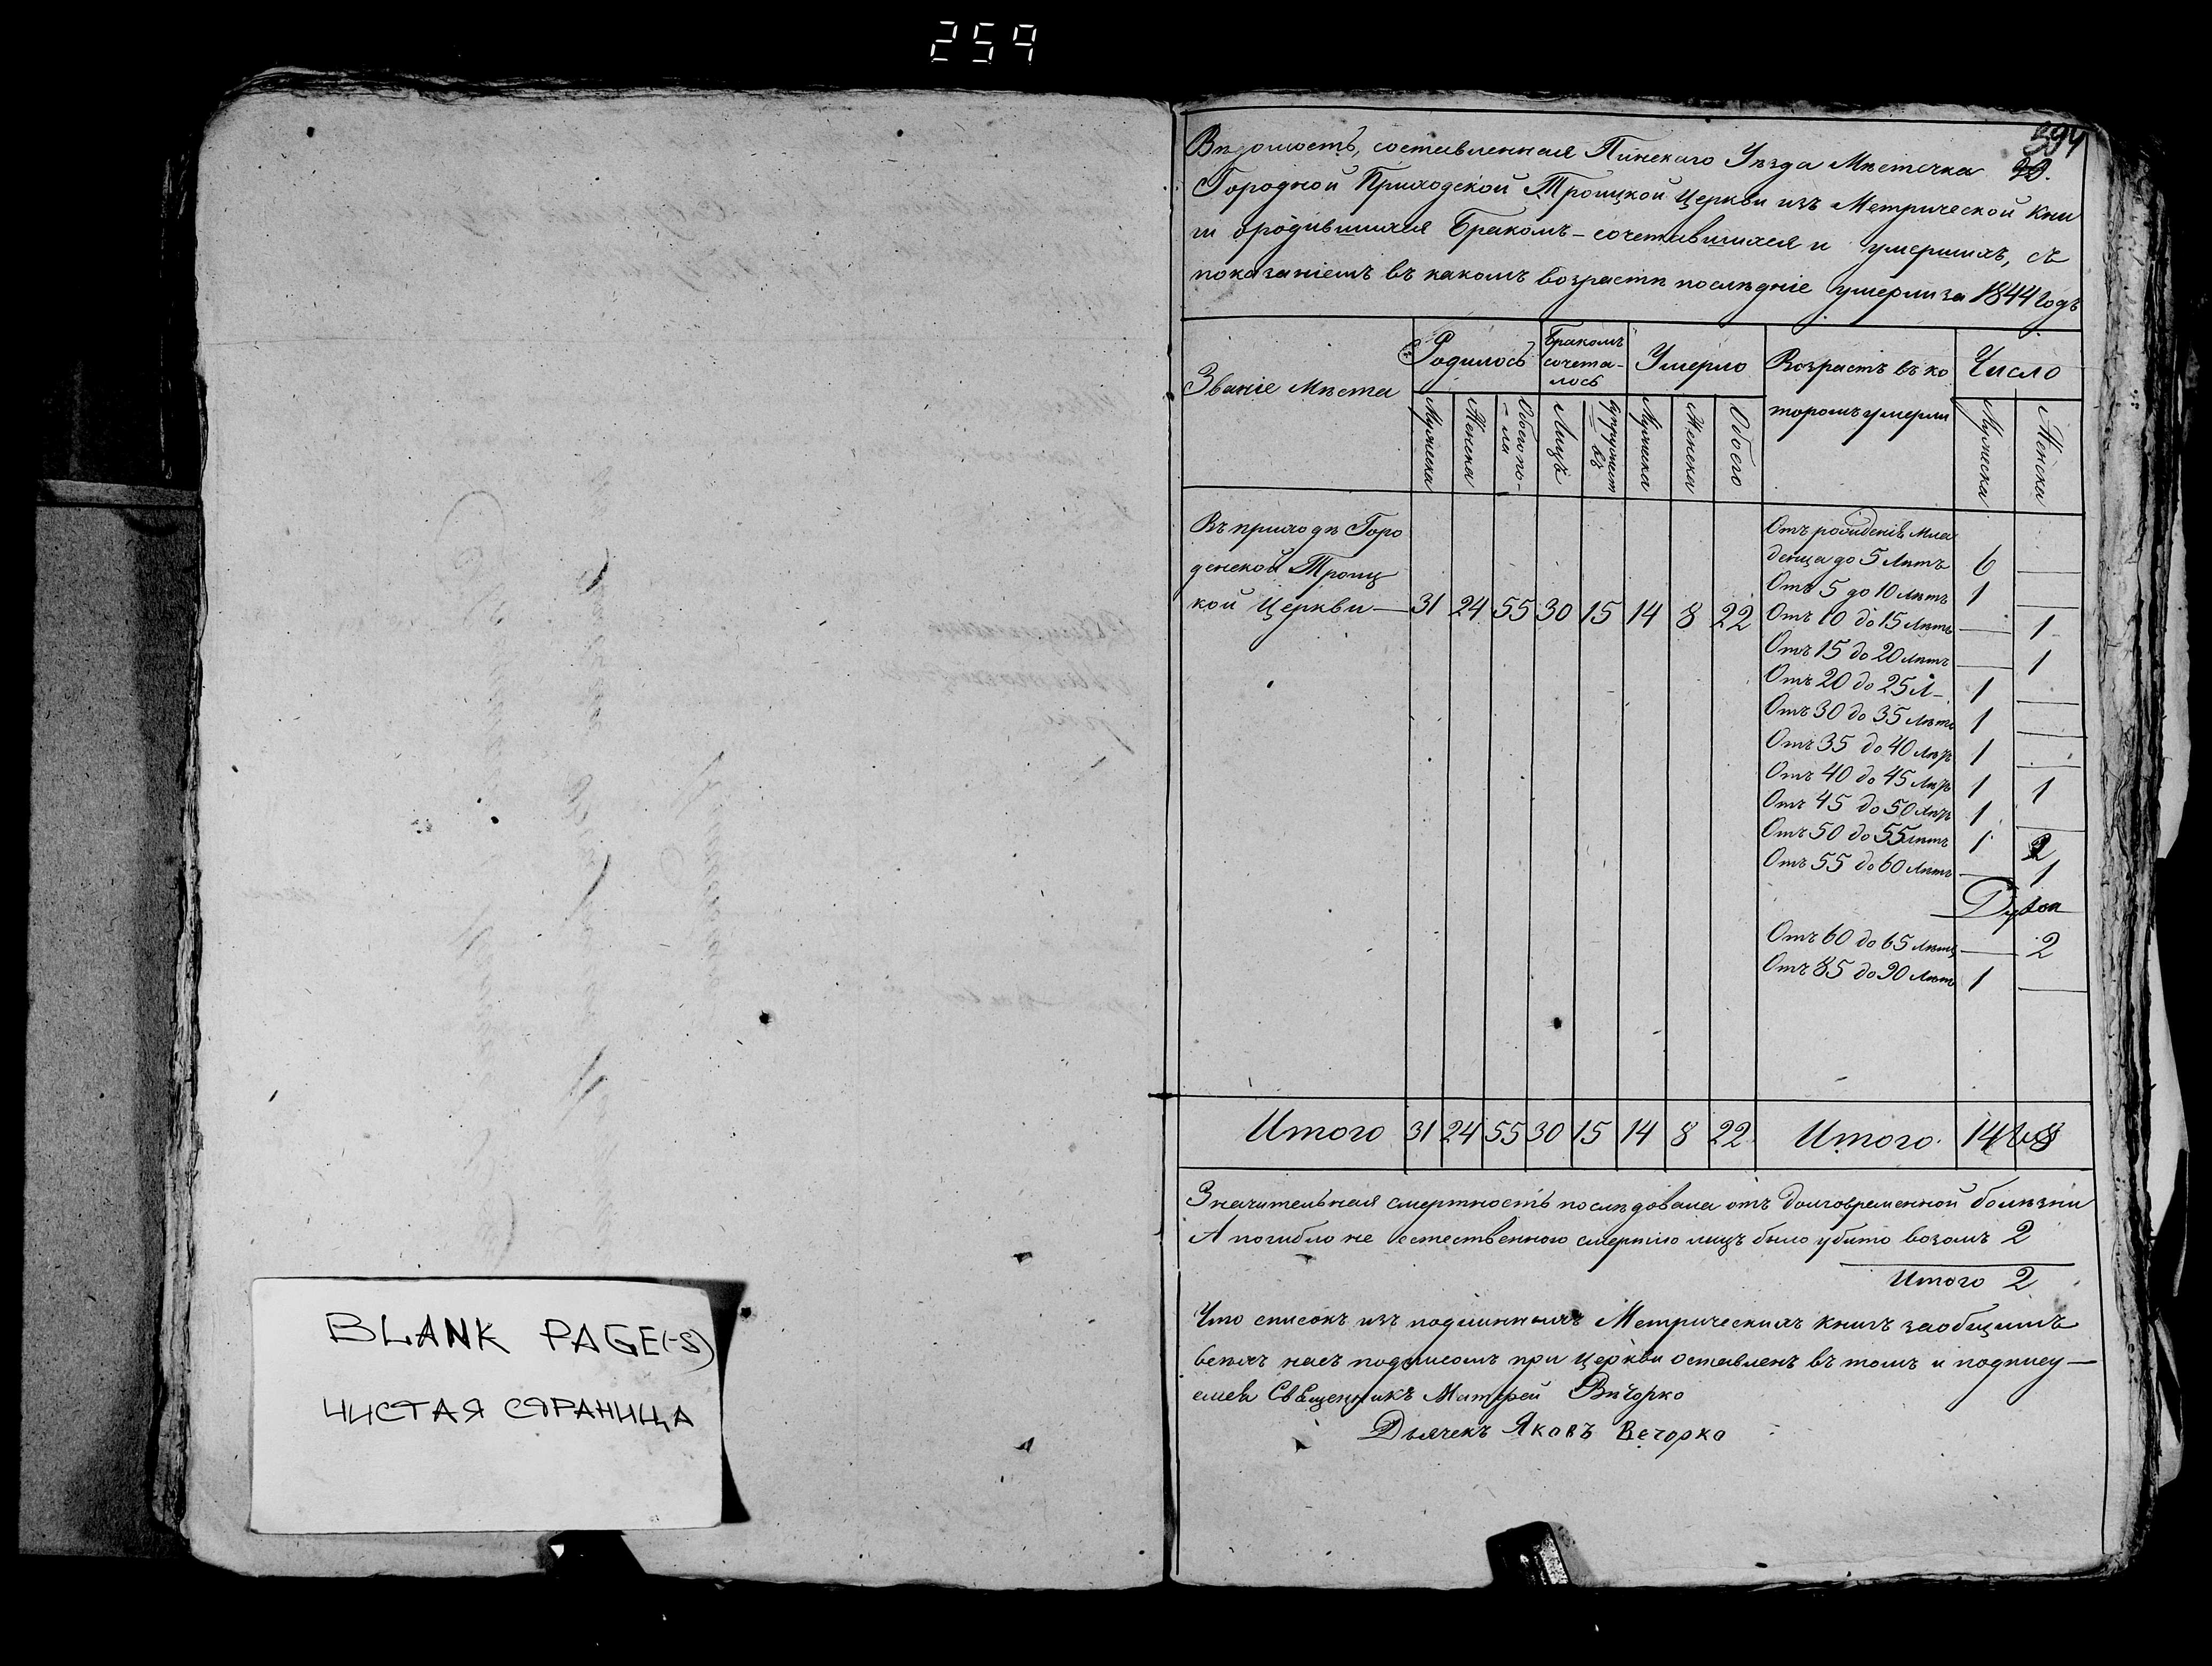 259
394
Вѣдомость, составленная Пинскаго Уѣзда Мѣстечка
Городной Приходской Троицкой Церкви изъ Метрической Кни
ги ородившихся Бракомъ-сочетавшихся и умершихъ, съ
показаніемъ въ какомъ возрастѣ послѣдніе умерли за 1844 годъ
Званіе Мѣста
Родилось
Бракомъ
сочета-
лось
Умерло
Возрастъ въ ко
торомъ умерли
Число
Мужеска
Женска
Обоего по-
ла
Лицъ
супружест
въ
Мужеска
Женска
Обоего
Мужеска
Женска
Въ приходѣ Горо
денской Троиц
кой Церкви — 31 24 55 30 15 14 8 22
Отъ рожденія мла
денца до 5 лѣтъ 6 —
Отъ 5 до 10 лѣтъ 1 —
Отъ 10 до 15 лѣтъ — 1
Отъ 15 до 20 лѣтъ — 1
Отъ 20 до 25 л— 1 —
Отъ 30 до 35 лѣтъ 1 —
Отъ 35 до 40 лѣтъ 1 —
Отъ 40 до 45 лѣтъ 1 1
Отъ 45 до 50 лѣтъ 1 —
Отъ 50 до 55 лѣтъ 1 2
Отъ 55 до 60 лѣтъ — 1
Отъ 60 до 65 лѣтъ — 2
Отъ 85 до 90 лѣтъ 1 —
Итого 31 24 55 30 15 14 8 22 Итого 14 8
Значительная смертность послѣдовала отъ долговременной болѣзни
А погибло не естественною смертію лицъ было убито возомъ 2
Итого 2
Что списокъ изъ подлинныхъ Метрическихъ книгъ заобщимъ
всѣхъ насъ подписомъ при Церкви оставленъ въ томъ и подпису—
емся Священникъ Матфей Вѣчорко
Дьячекъ Яковъ Вечорко
BLANK PAGE(-S)
ЧИСТАЯ СТРАНИЦА